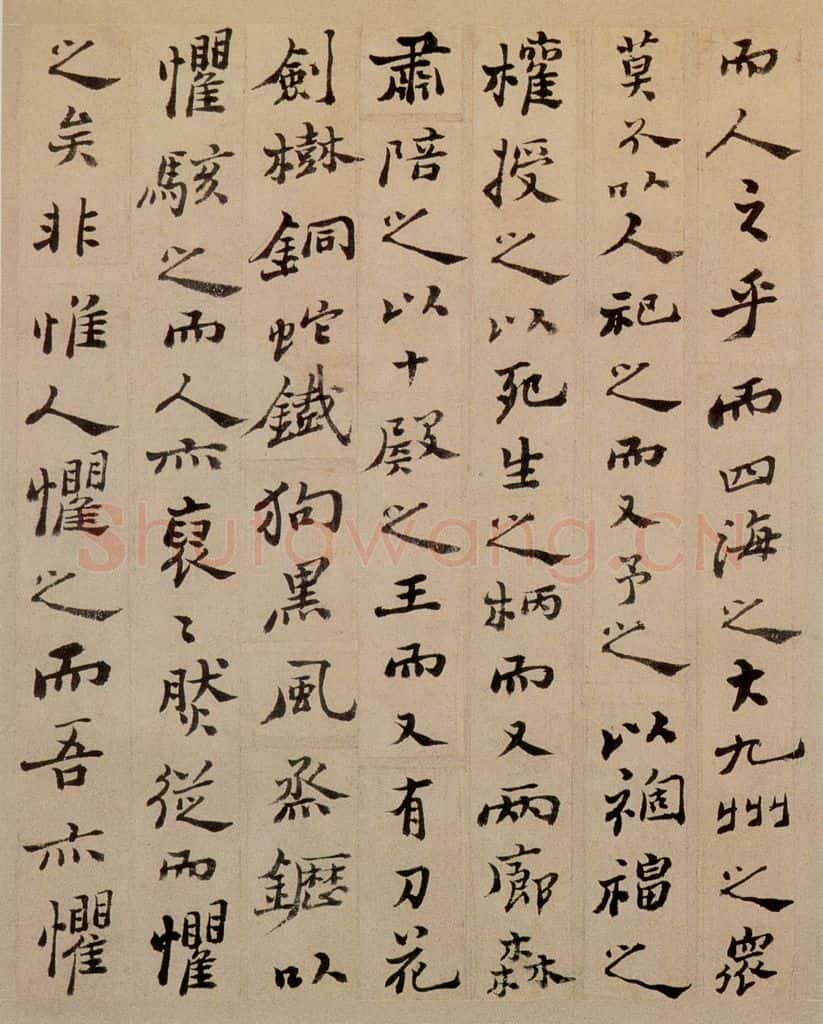 而人之乎而四海之大九州之眾
莫不以人祀之而又予之以禍福之
權授之以死生之柄而又兩廊森
肅陪之以十殿之王而又有刀花
劍樹銅蛇鐵狗黑風蒸鑩以
懼駭之而人亦裒裒然從而懼
之矣非惟人懼之而吾亦懼
Shufawang.CN